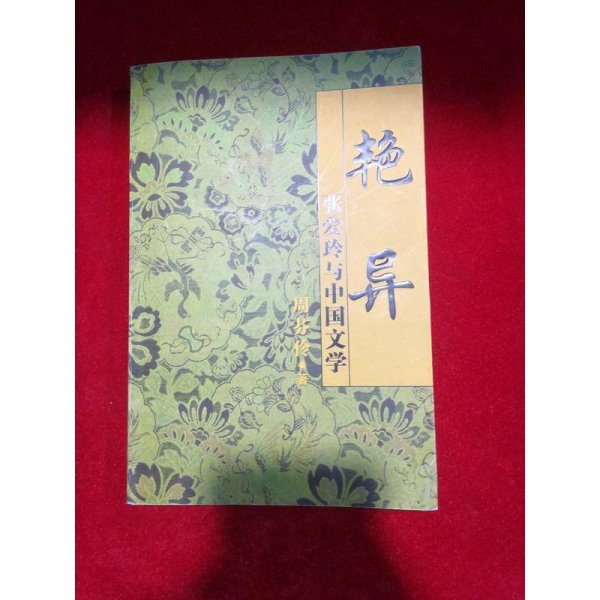 艳异
张爱玲与中国文学
周芬伶 著